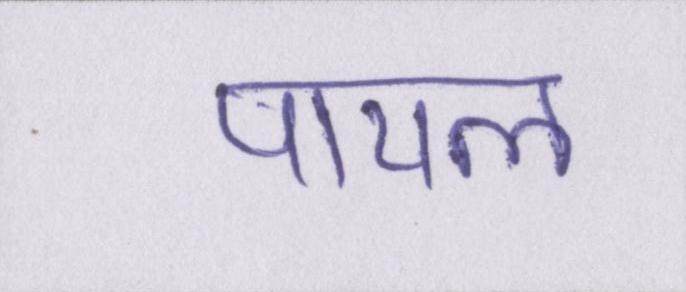 पायल